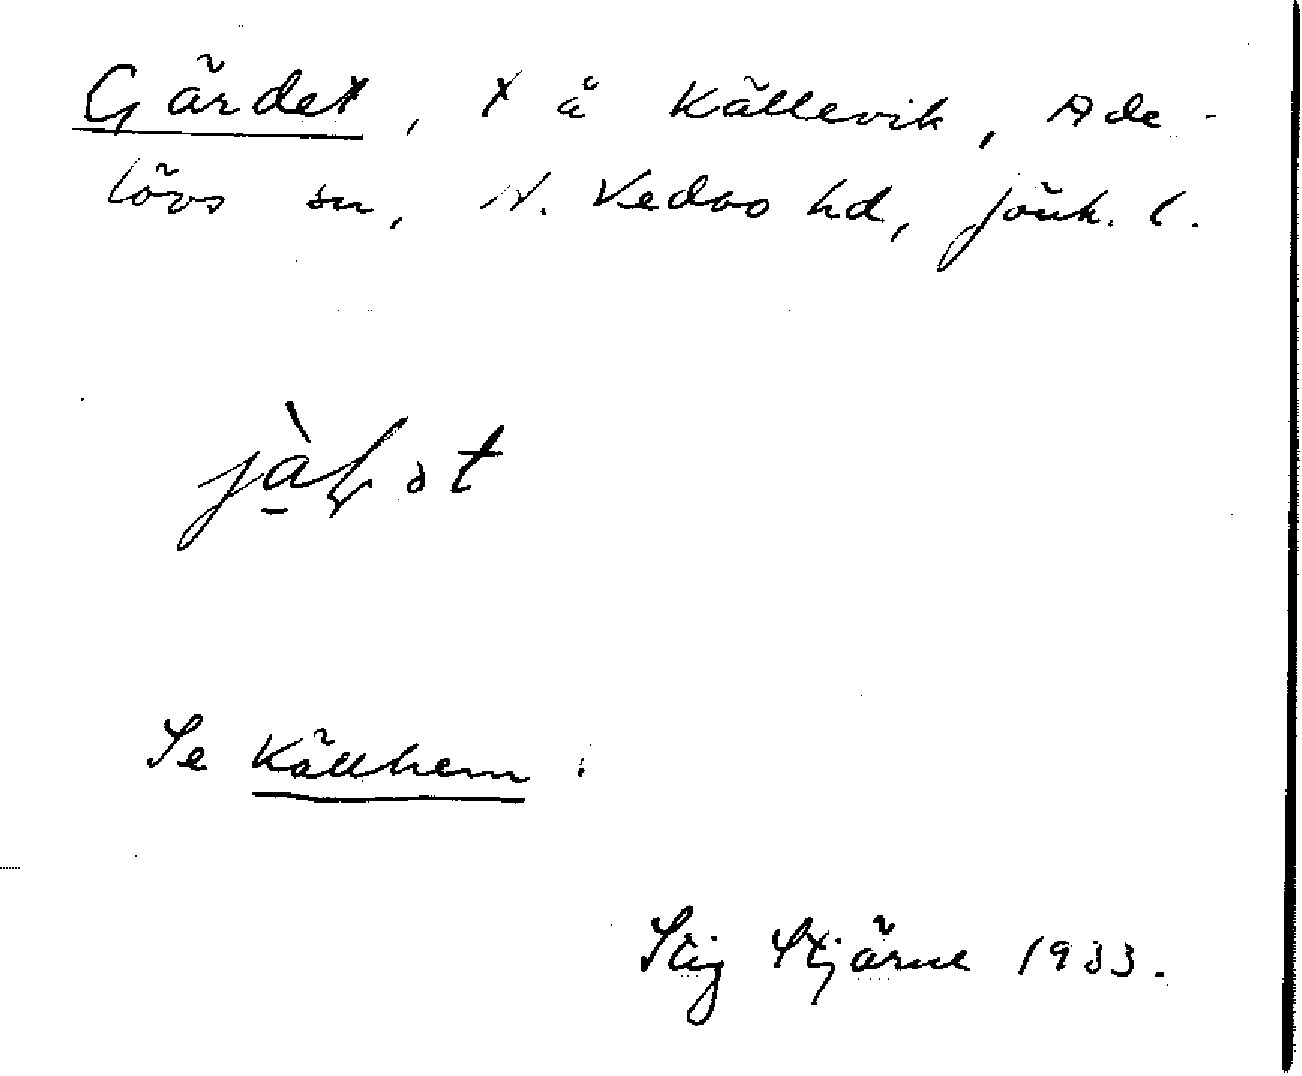 Gärdet, x å Källevik, Ade-
lövs sn, N. Vedbo hd, Jönk. l.
Se Källhem.
Stig Stjärne 1933.